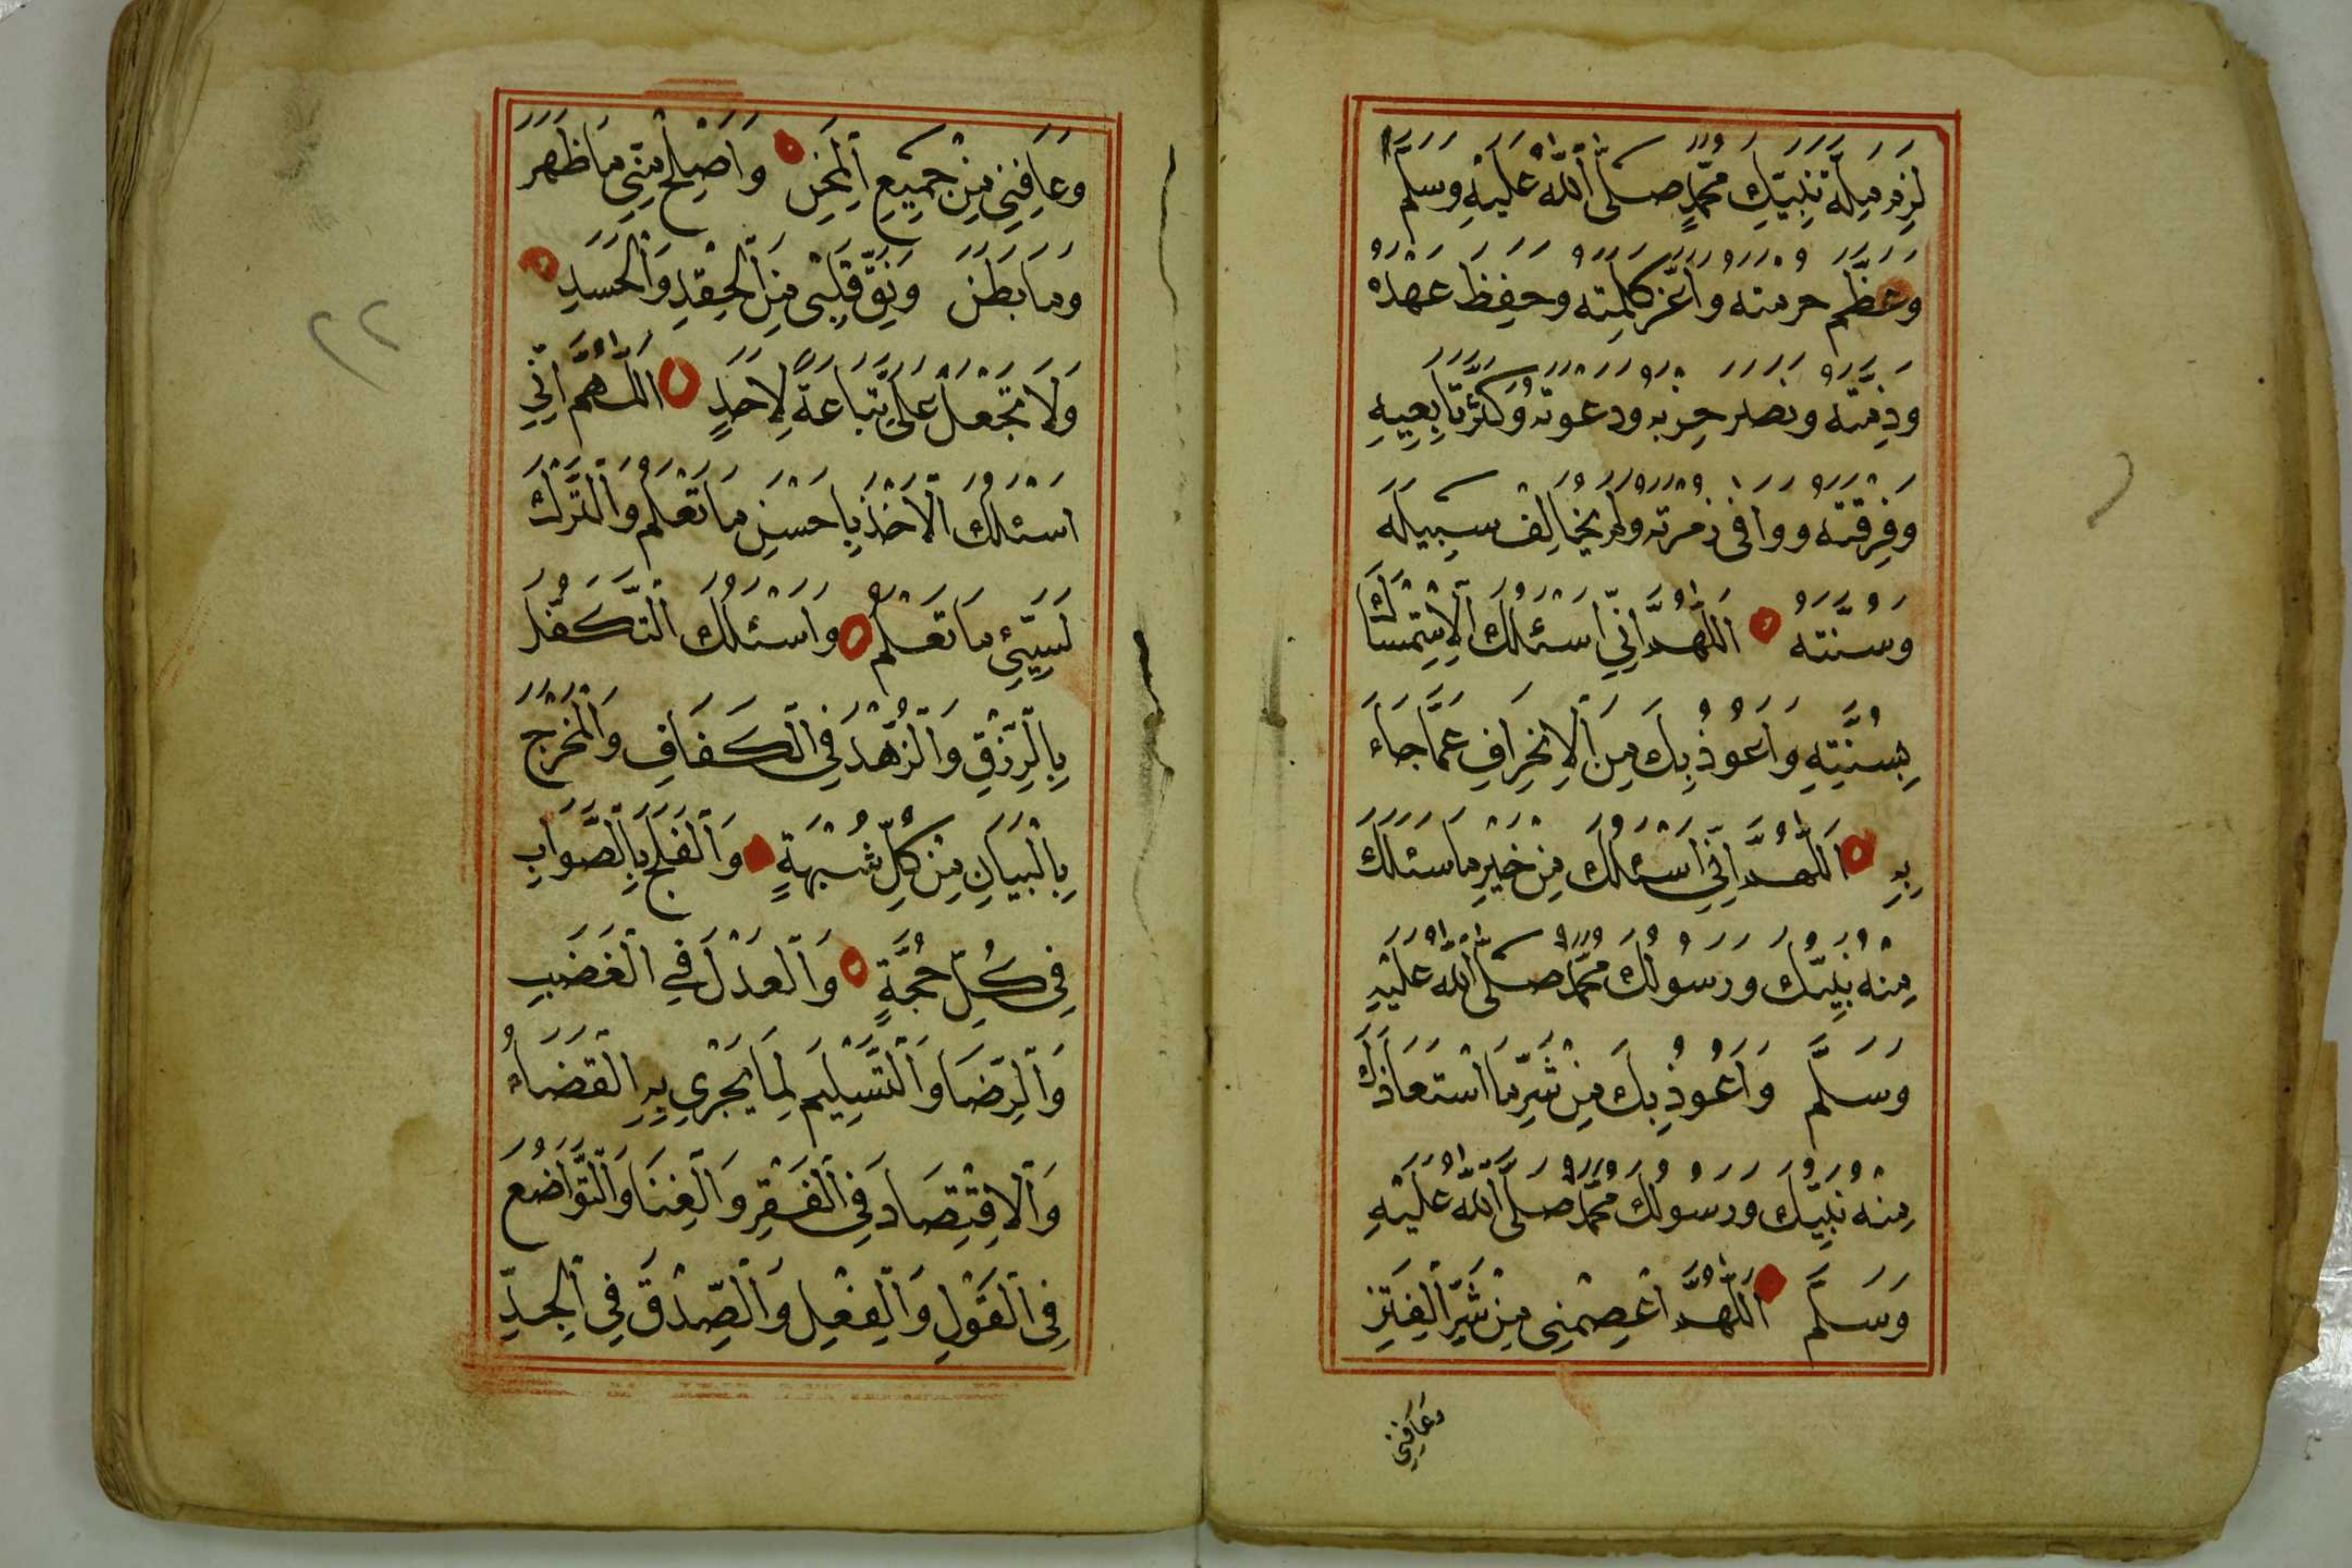 لَزِمَ مِلَّةَ نَبِيِّكَ مُحَمَّدٍ صَلَّى اللّٰهُ عَلَيْهِ وَسَلَّمَ
وَعَظَّمَ حُرْمَتَهُ وَأَعَزَّ كَلِمَتَهُ وَحَفِظَ عَهْدَهُ
وَذِمَّتَهُ وَنَصَرَ حِزْبَهُ وَدَعْوَتَهُ وَكَثَّرَ تَابِعِيهِ
وَفِرْقَتَهُ وَوَافَى زُمْرَتَهُ وَلَمْ يُخَالِفْ سَبِيلَهُ
وَسُنَّتَهُ اَللّٰهُمَّ اِنِّي اَسْئَلُكَ الْاِسْتِمْسَاكَ
بِسُنَّتِهِ وَاَعُوذُ بِكَ مِنَ الْاِنْحِرَافِ عَمَّا جَاءَ
بِهِ اَللّٰهُمَّ اِنِّي اَسْئَلُكَ مِنْ خَيْرِ مَا سَئَلَكَ
مِنْهُ نَبِيُّكَ وَرَسُولُكَ مُحَمَّدٌ صَلَّى اللّٰهُ عَلَيْهِ
وَسَلَّمَ وَاَعُوذُ بِكَ مِنْ شَرِّ مَا اسْتَعَاذَكَ
مِنْهُ نَبِيُّكَ وَرَسُولُكَ مُحَمَّدٌ صَلَّى اللّٰهُ عَلَيْهِ
وَسَلَّمَ اَللّٰهُمَّ اعْصِمْنِي مِنْ شَرِّ الْفِتَنِ
وَعَافِنِي
وَعَافِنِي مِنْ جَمِيعِ الْمِحَنِ وَاَصْلِحْ مِنِّي مَا ظَهَرَ
وَمَا بَطَنَ وَنَقِّ قَلْبِي مِنَ الْحِقْدِ وَالْحَسَدِ
وَلَا تَجْعَلْ عَلَيَّ تِبَاعَةً لِاَحَدٍ اَللّٰهُمَّ اِنِّي
اَسْئَلُكَ الْاَخْذَ بِاَحْسَنِ مَا تَعْلَمُ وَالتَّرْكَ
لِسَيِّئِ مَا تَعْلَمُ وَاَسْئَلُكَ التَّكَفُّلَ
بِالرِّزْقِ وَالزُّهْدَ فِي الْكَفَافِ وَالْمَخْرَجَ
بِالْبَيَانِ مِنْ كُلِّ شُبْهَةٍ وَالْفَلَجَ بِالصَّوَابِ
فِي كُلِّ حُجَّةٍ وَالْعَدْلَ فِي الْغَضَبِ
وَالرِّضَا وَالتَّسْلِيمَ لِمَا يَجْرِي بِهِ الْقَضَاءُ
وَالْاِقْتِصَادَ فِي الْفَقْرِ وَالْغِنَا وَالتَّوَاضُعَ
فِي الْقَوْلِ وَالْفِعْلِ وَالصِّدْقَ فِي الْجِدِّ
٢٢